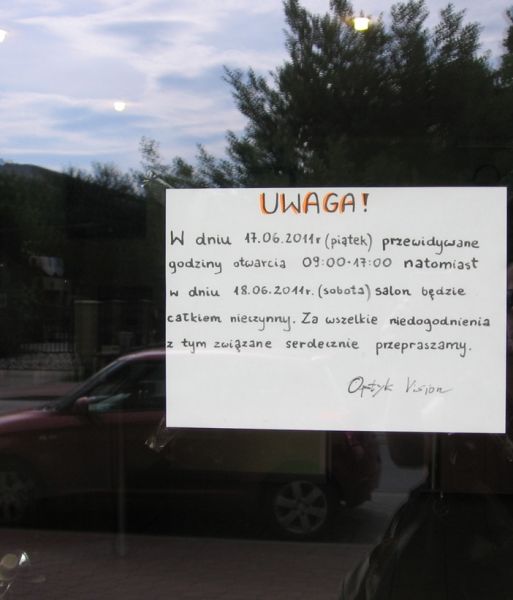 UWAGA!
W dniu 17.06.2011r (piątek) przewidywane
godziny otwarcia 09:00-17:00 natomiast
w dniu 18.06.2011r. (sobota) salon będzie
całkiem nieczynny. Za wszelkie niedogodnienia
z tym związane serdecznie przepraszamy.
Optyk Vision